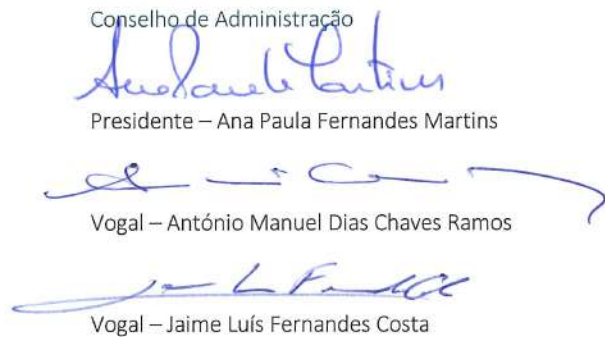 Conselho de Administração
Presidente – Ana Paula Fernandes Martins
Vogal – António Manuel Dias Chaves Ramos
Vogal – Jaime Luís Fernandes Costa